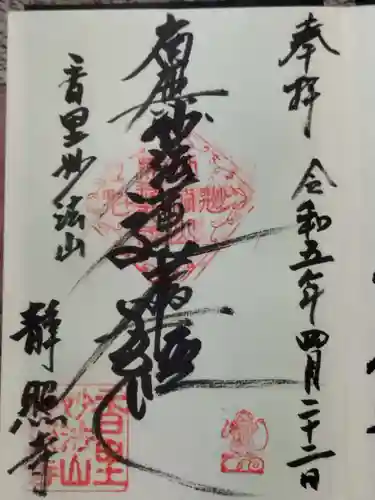 奉拝
令和五年四月二十二日
南無妙法蓮華経
香里妙法山
静照寺
香里
妙法山